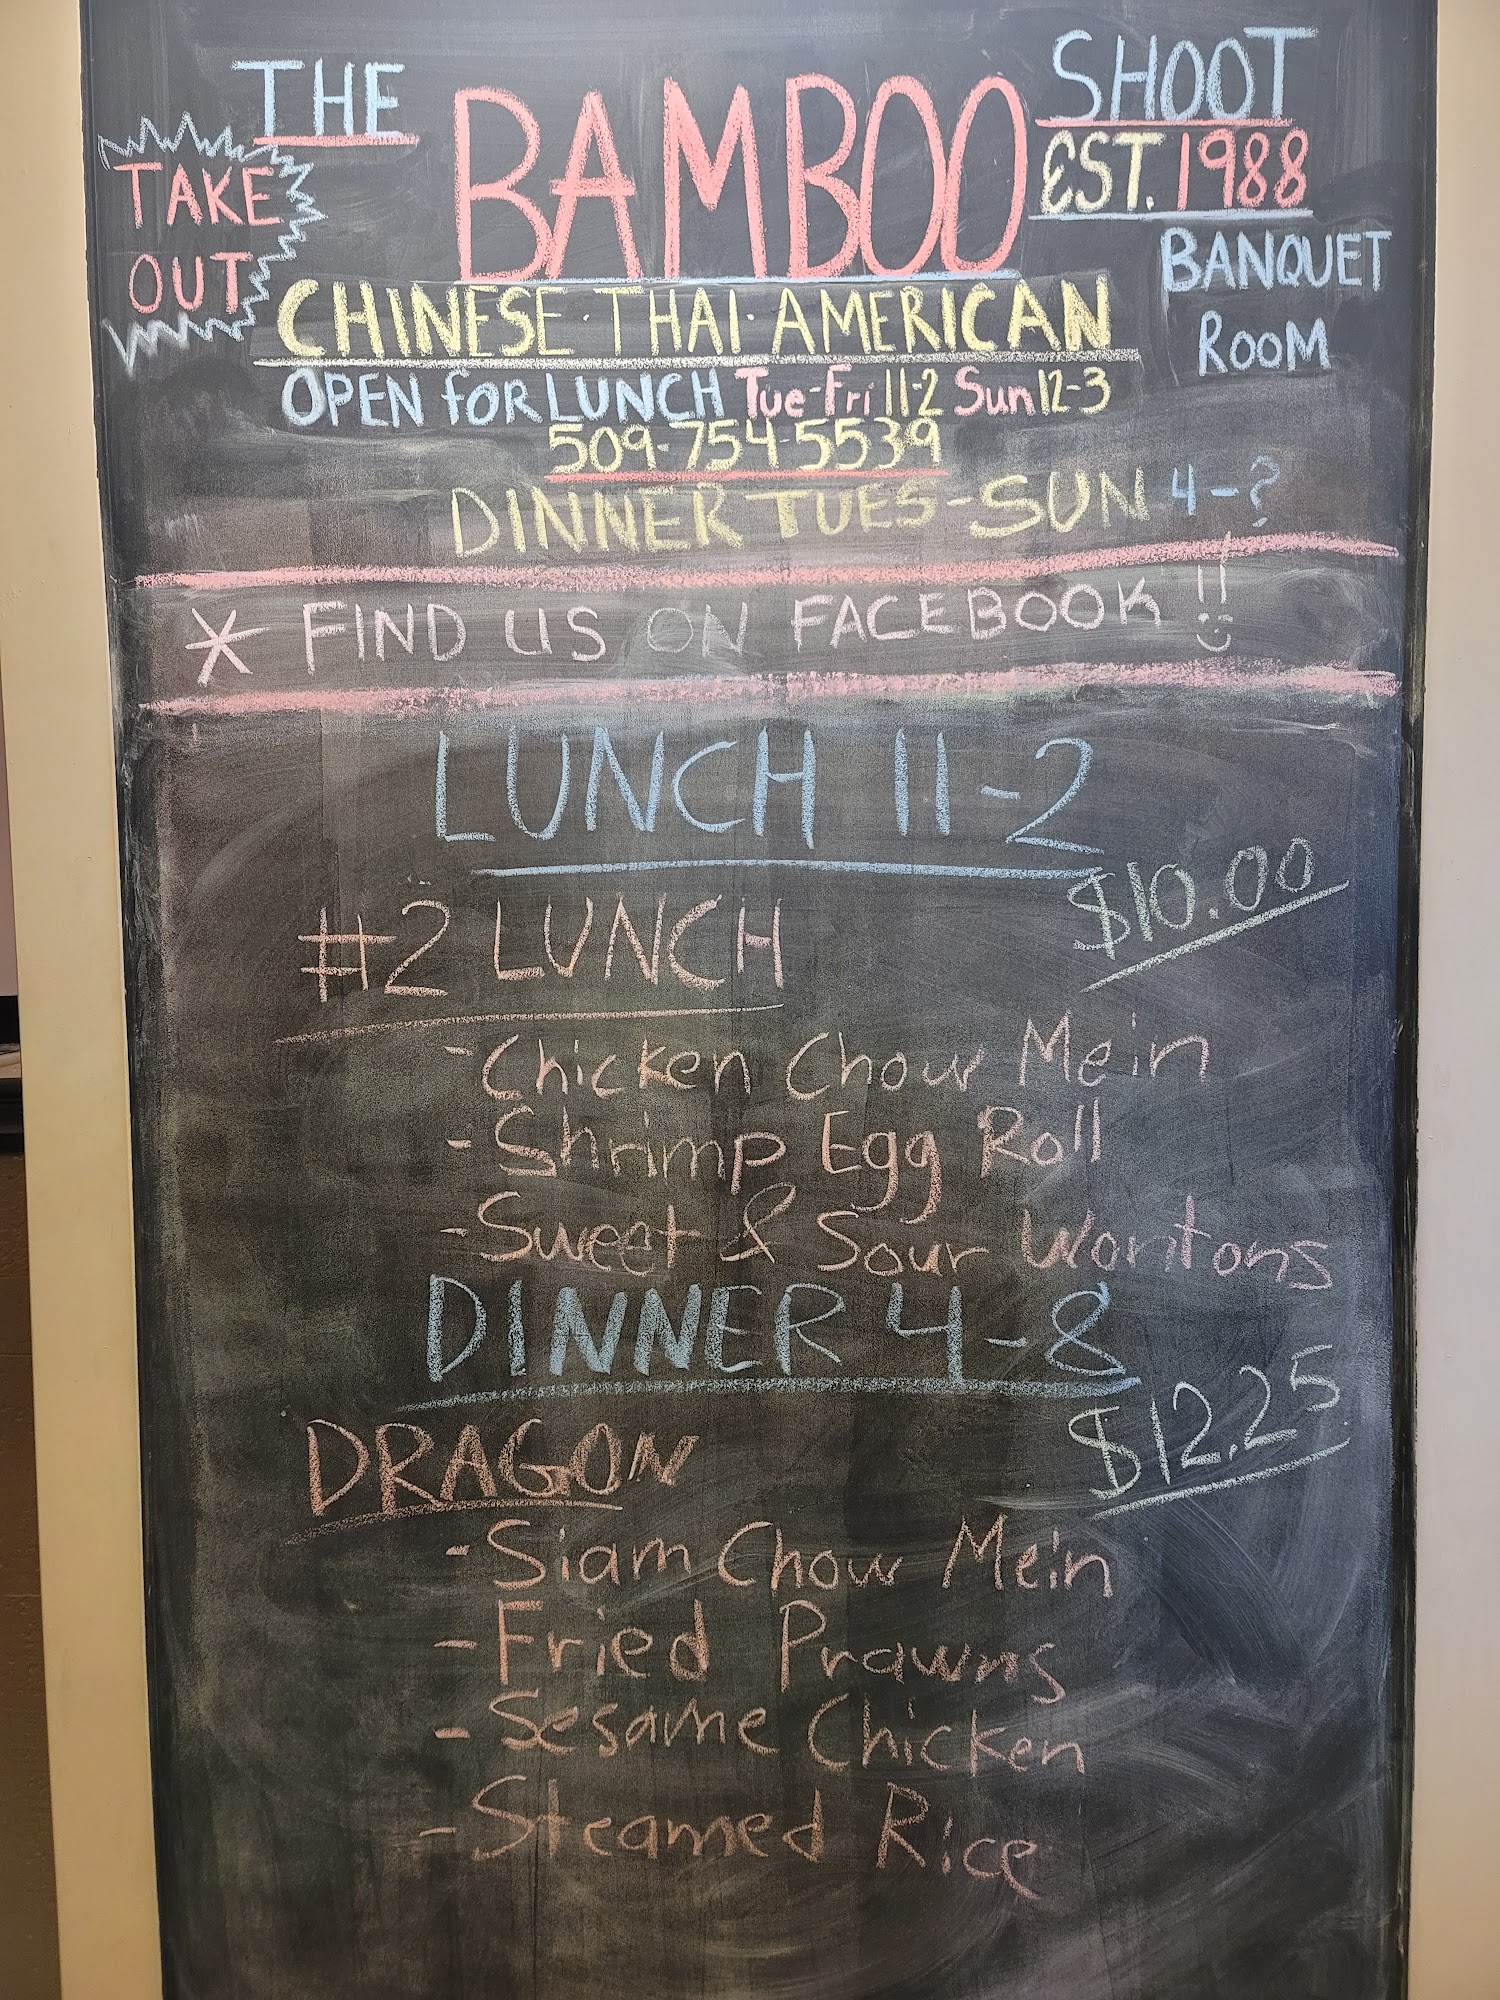 THE BAMBOO SHOOT
EST. 1988
TAKE
OUT
BANQUET
ROOM
CHINESE · THAI · AMERICAN
OPEN FOR LUNCH Tue-Fri 11-2 Sun 12-3
509-754-5539
DINNER TUES-SUN 4-?
* FIND US ON FACEBOOK !!
LUNCH 11-2
$10.00
#2 LUNCH
- Chicken Chow Mein
- Shrimp Egg Roll
- Sweet & Sour Wontons
DINNER 4-8
$12.25
DRAGON
- Siam Chow Mein
- Fried Prawns
- Sesame Chicken
- Steamed Rice